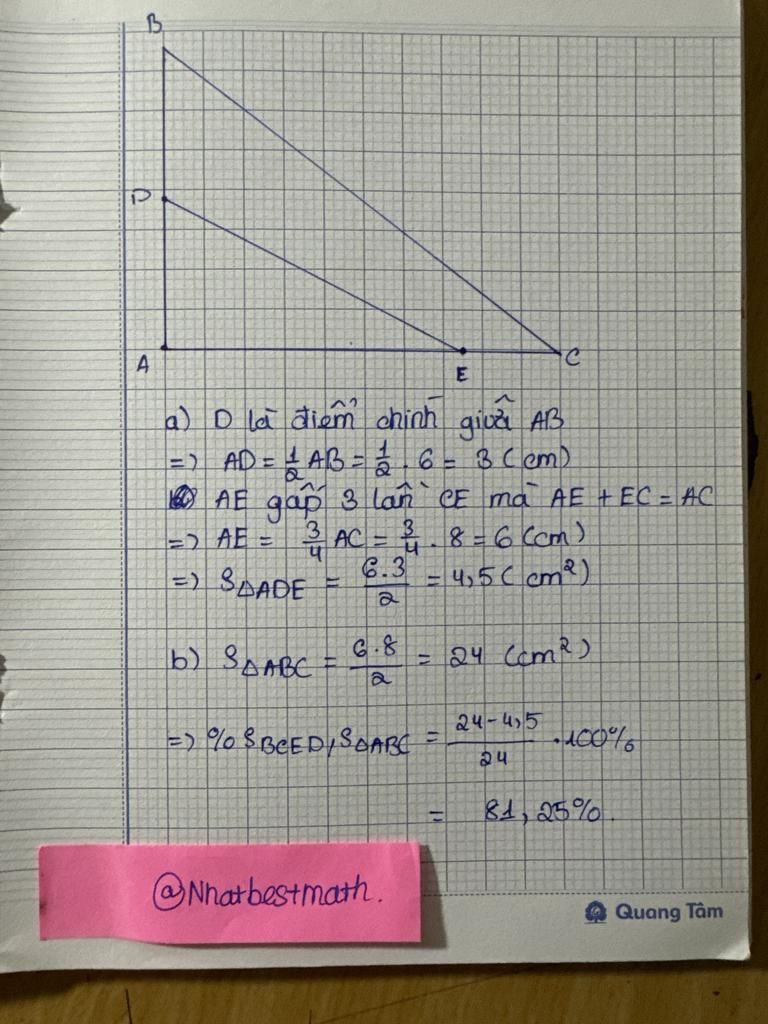 B
D
A
E
C
a) D là điểm chính giữa AB
=) AD = 1/2 AB = 1/2 . 6 = 3 (cm)
AE gấp 3 lần CE mà AE + EC = AC
=) AE = 3/4 AC = 3/4 . 8 = 6 (cm)
=) S△ADE = 6.3/2 = 4,5 (cm²)
b) S△ABC = 6.8/2 = 24 (cm²)
=) % SBCED, S△ABC = 24-4,5/24 .100%
= 81,25%.
@Nhatbestmath.
Quang Tâm